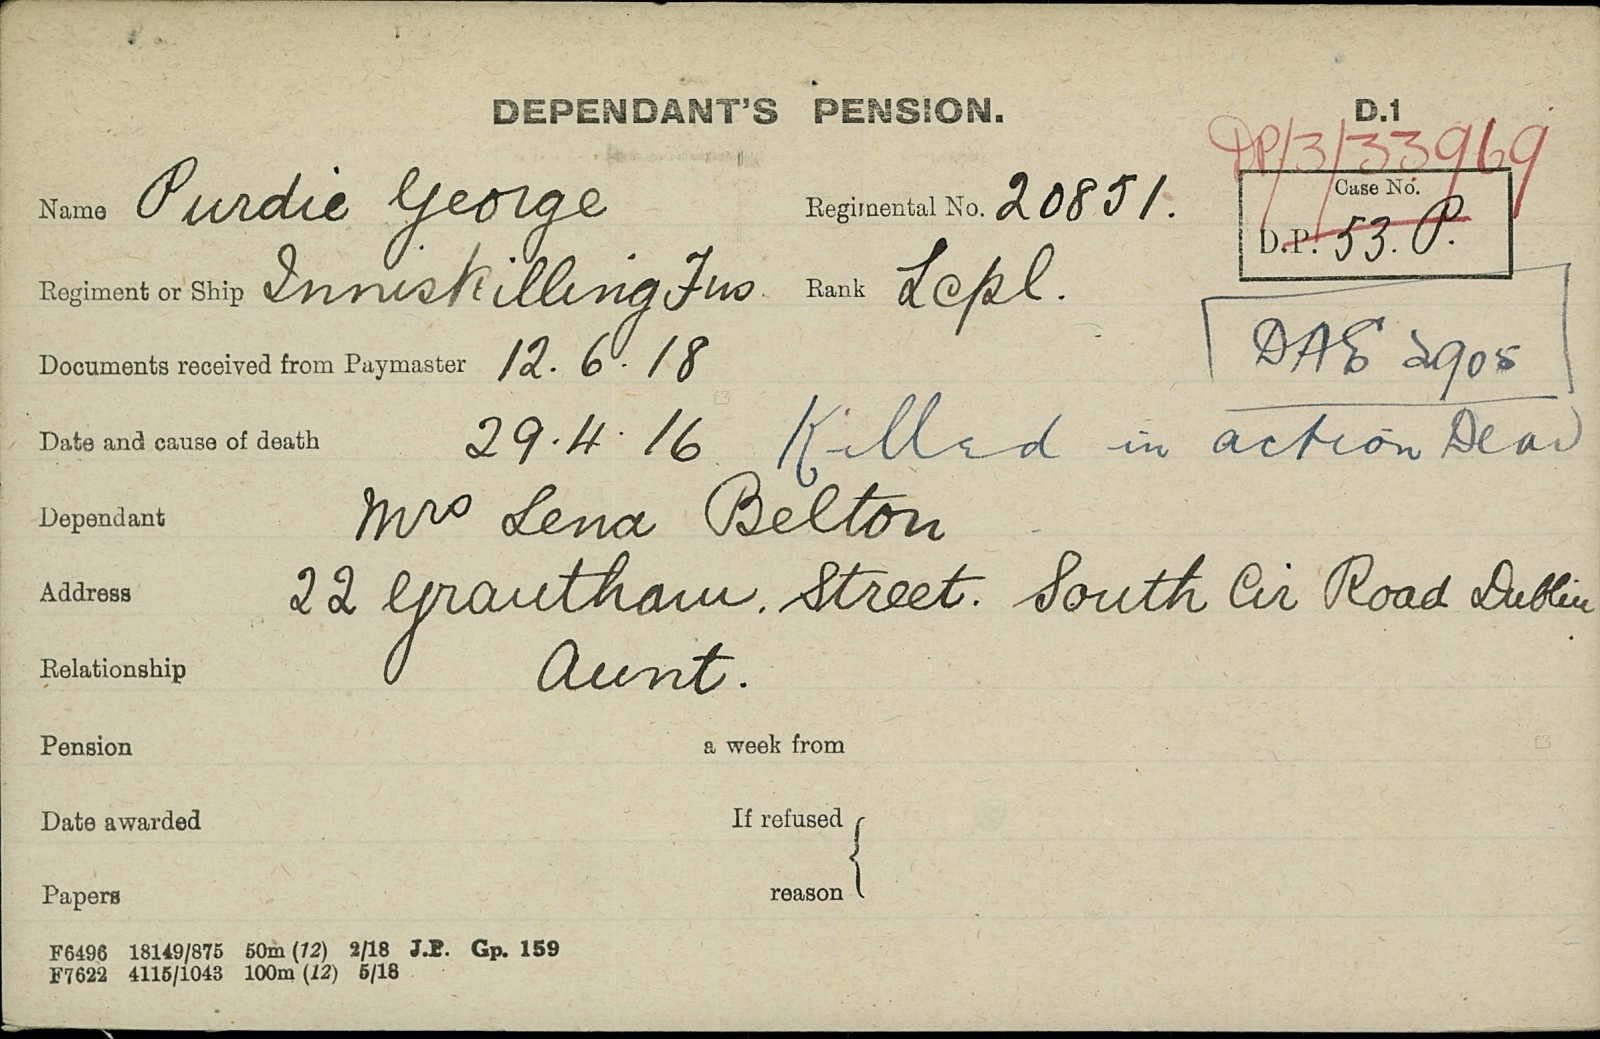 DEPENDANT'S PENSION.
D.1
DP/3/33969
Name Purdie George
Regimental No. 20851.
Case No.
D.P. 53. P.
Regiment or Ship Inniskilling Fus
Rank Lcpl.
DAE 2905
Documents received from Paymaster 12.6.18
Date and cause of death 29.4.16 Killed in action
Dependant Mrs Lena Belton
Address 22 Grantham. Street. South Cir Road Dublin
Relationship Aunt.
Pension a week from
Date awarded If refused
Papers reason
F6496 18149/875 50m (12) 2/18 J.P. Gp. 159
F7622 4115/1043 100m (12) 5/18